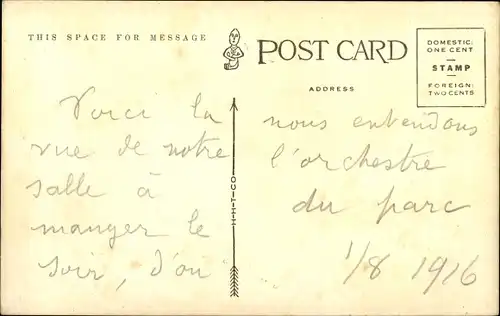 THIS SPACE FOR MESSAGE
POST CARD
ADDRESS
DOMESTIC:
ONE CENT
STAMP
FOREIGN:
TWO CENTS
H-H-T-CO
Voici la
vue de notre
salle à
manger le
soir, d'ou
nous entendons
l'orchestre
du parc
1/8 1916